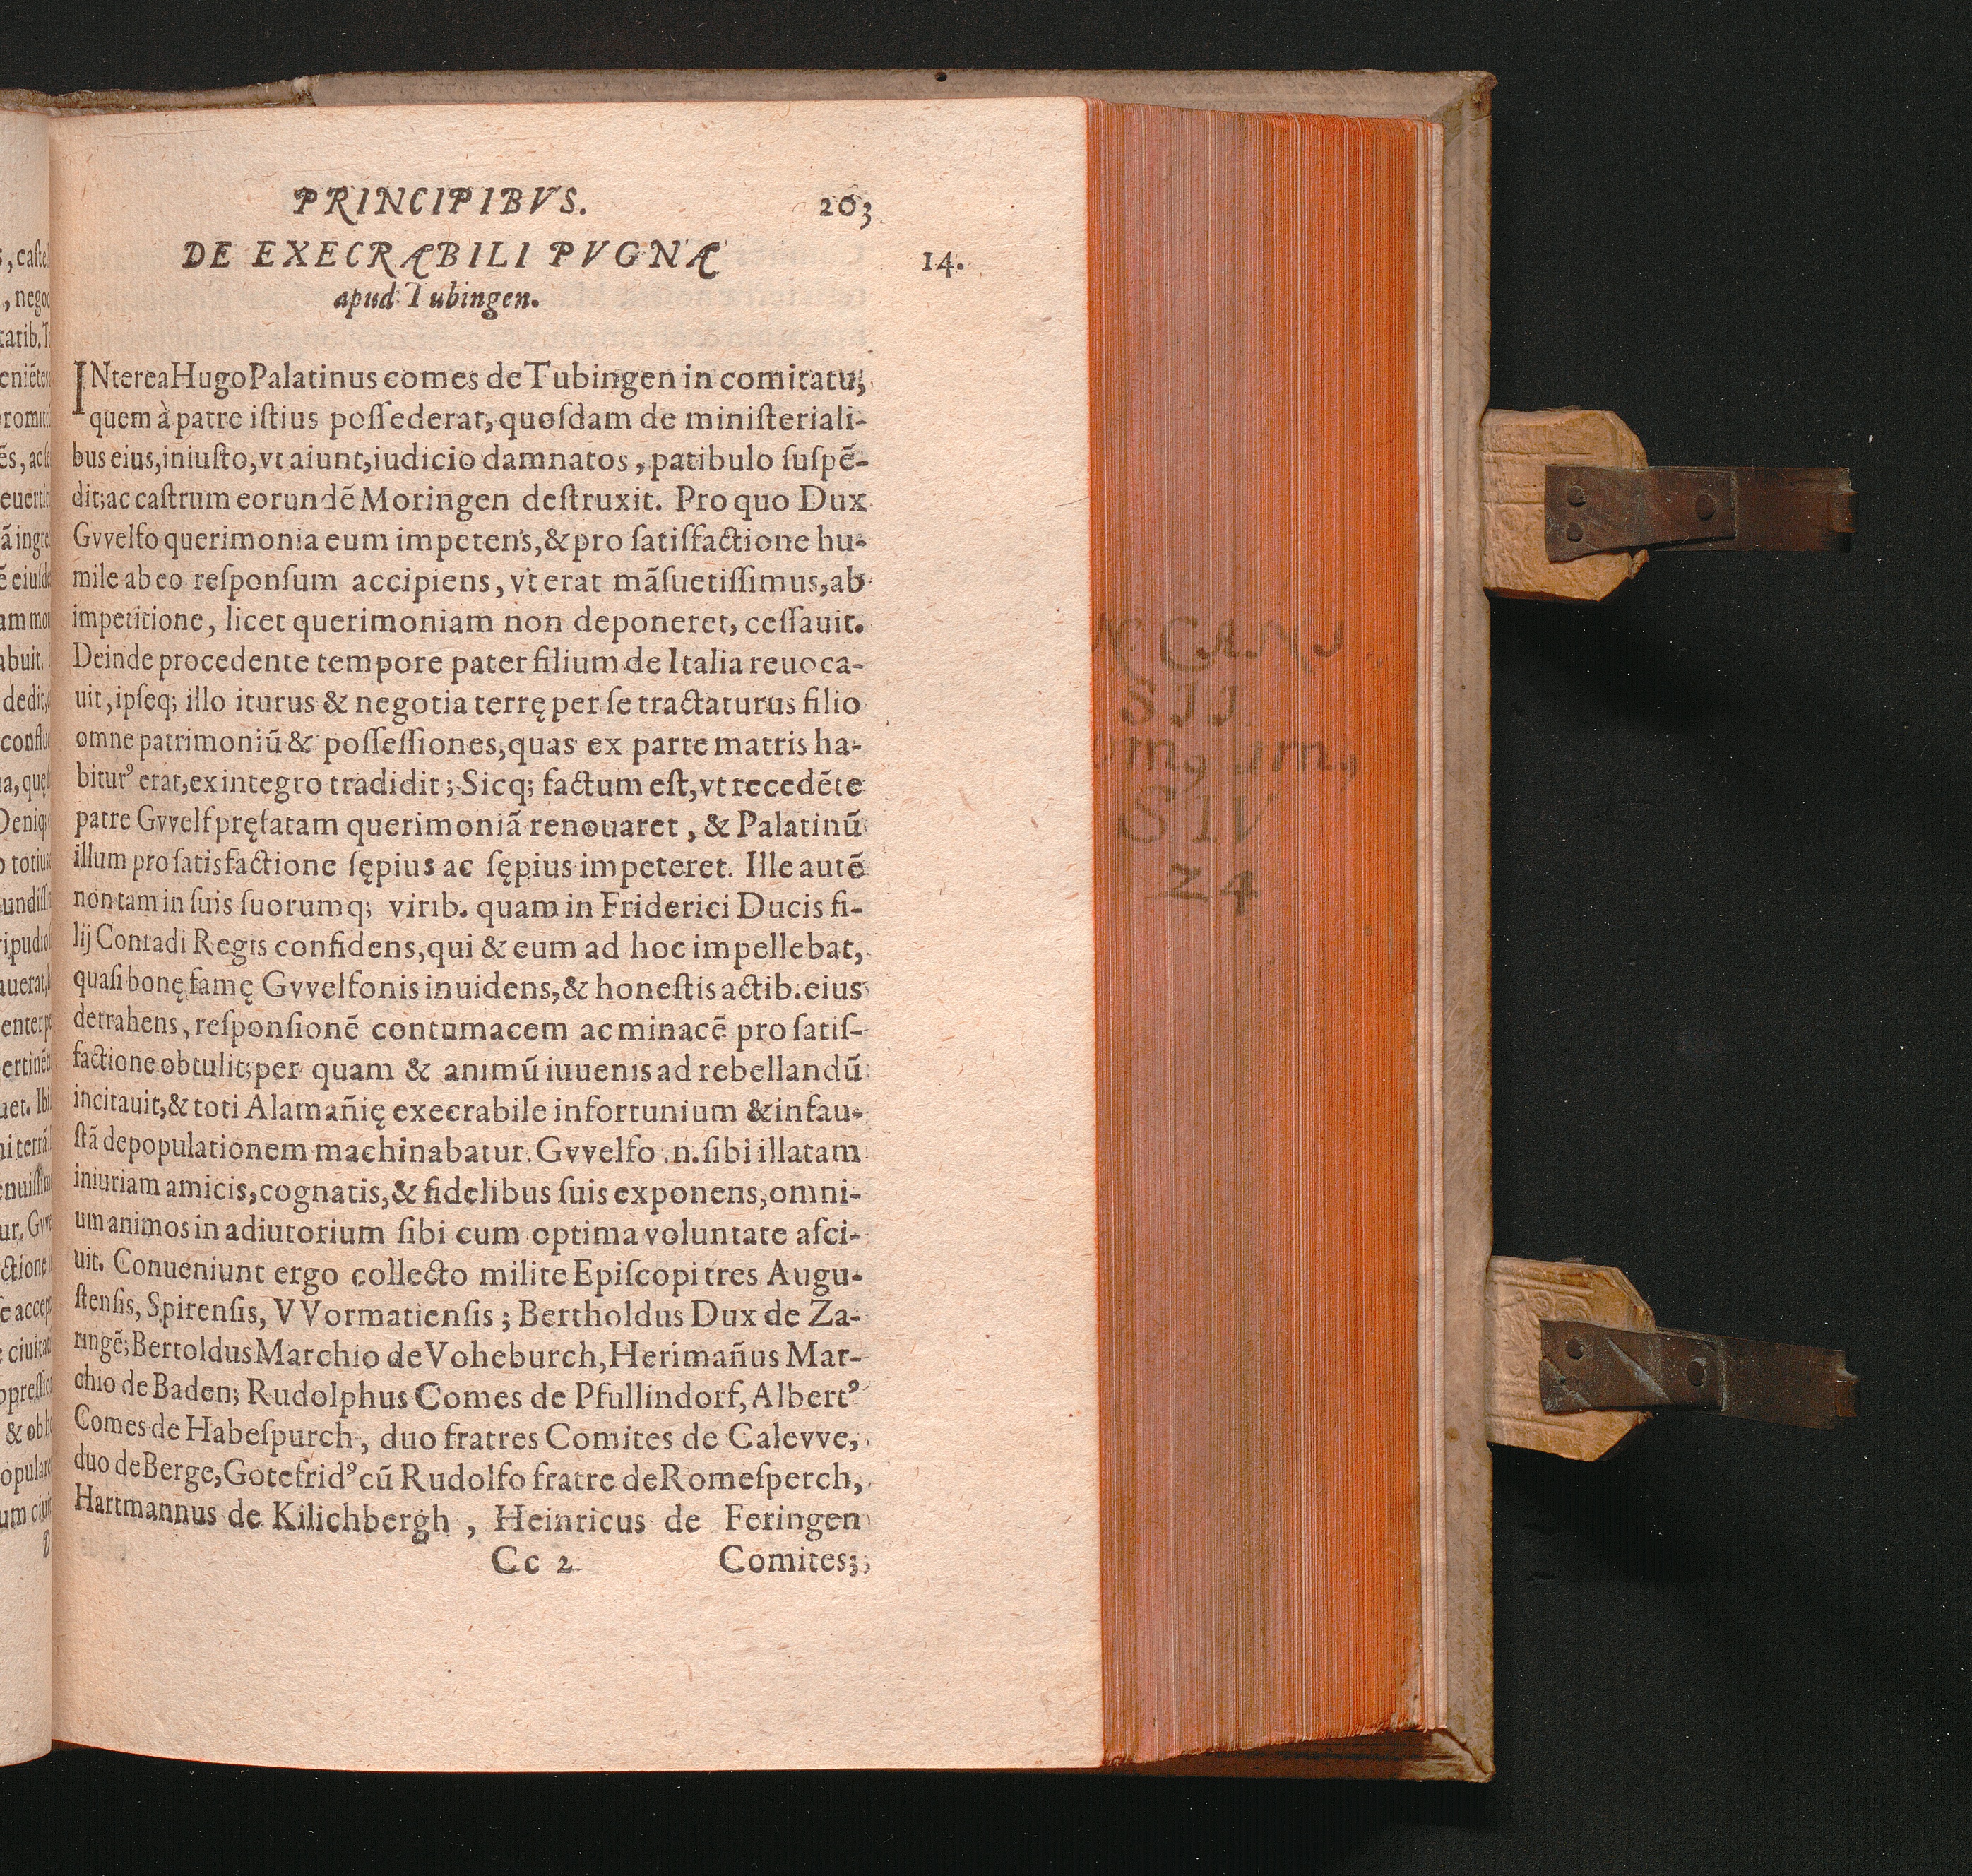 PRINCIPIBVS. 203
DE EXECRABILI PVGNA 14.
apud Tubingen.
INterea Hugo Palatinus comes de Tubingen in comitatu,
quem à patre istius possederat, quosdam de ministeriali-
bus eius, iniusto, vt aiunt, iudicio damnatos, patibulo suspē-
dit; ac castrum eorundē Moringen destruxit. Pro quo Dux
Gvvelfo querimonia eum impetens, & pro satisfactione hu-
mile ab eo responsum accipiens, vt erat māsuetissimus, ab
impetitione, licet querimoniam non deponeret, cessauit.
Deinde procedente tempore pater filium de Italia reuoca-
uit, ipseq; illo iturus & negotia terrę per se tractaturus filio
omne patrimoniū & possessiones, quas ex parte matris ha-
bitur⁹ erat, ex integro tradidit; Sicq; factum est, vt recedēte
patre Gvvelf pręfatam querimoniā renouaret, & Palatinū
illum pro satisfactione sępius ac sępius impeteret. Ille autē
non tam in suis suorumq; virib. quam in Friderici Ducis fi-
lij Conradi Regis confidens, qui & eum ad hoc impellebat,
quasi bonę famę Gvvelfonis inuidens, & honestis actib. eius
detrahens, responsionē contumacem ac minacē pro satis-
factione obtulit; per quam & animū iuuenis ad rebellandū
incitauit, & toti Alamañię execrabile infortunium & infau-
stā depopulationem machinabatur. Gvvelfo .n. sibi illatam
iniuriam amicis, cognatis, & fidelibus suis exponens, omni-
um animos in adiutorium sibi cum optima voluntate asci-
uit. Conueniunt ergo collecto milite Episcopi tres Augu-
stensis, Spirensis, VVormatiensis; Bertholdus Dux de Za-
ringē; Bertoldus Marchio de Voheburch, Herimañus Mar-
chio de Baden; Rudolphus Comes de Pfullindorf, Albert⁹
Comes de Habespurch, duo fratres Comites de Calevve,
duo de Berge, Gotefrid⁹ cū Rudolfo fratre de Romesperch,
Hartmannus de Kilichbergh, Heinricus de Feringen
Cc 2 Comites;
S I V
24